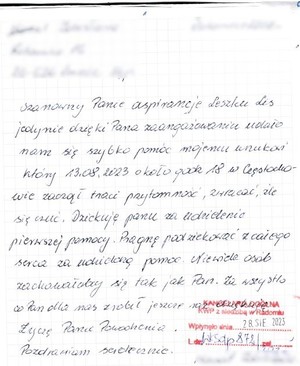 Szanowny Panie aspirancie Leszku Les
jedynie dzięki Pana zaangażowaniu udało
nam się szybko pomóc mojemu wnukowi
który 13.08.2023 około godz 18 w Częstocho-
wie zaczął traci przytomność, zwracać, źle
się czuć. Dziękuję panu za udzielenie
pierwszej pomocy. Pragnę podziękować z całego
serca za udzieloną pomoc. Niewiele osób
zachowałoby się tak jak Pan. Za wszystko
co Pan dla nas zrobił jeszcze raz
Życzę Panie Powodzenia.
Pozdrawiam serdecznie.
KWP z siedzibą w Radomiu
Wpłynęło dnia 28 SIE 2023
L.dz.